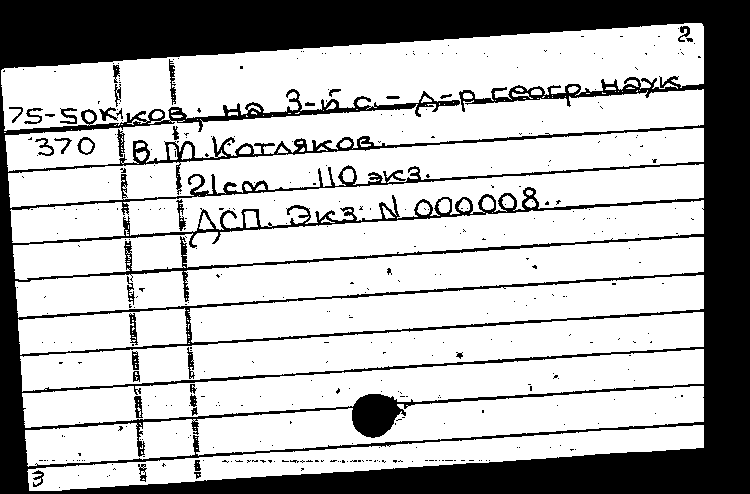 2
75-50к ков; на 3-й с. - д-р геогр. наук
370 В.М.Котляков.
21cm 110 экз.
ДСП. Экз. N 000008.
3